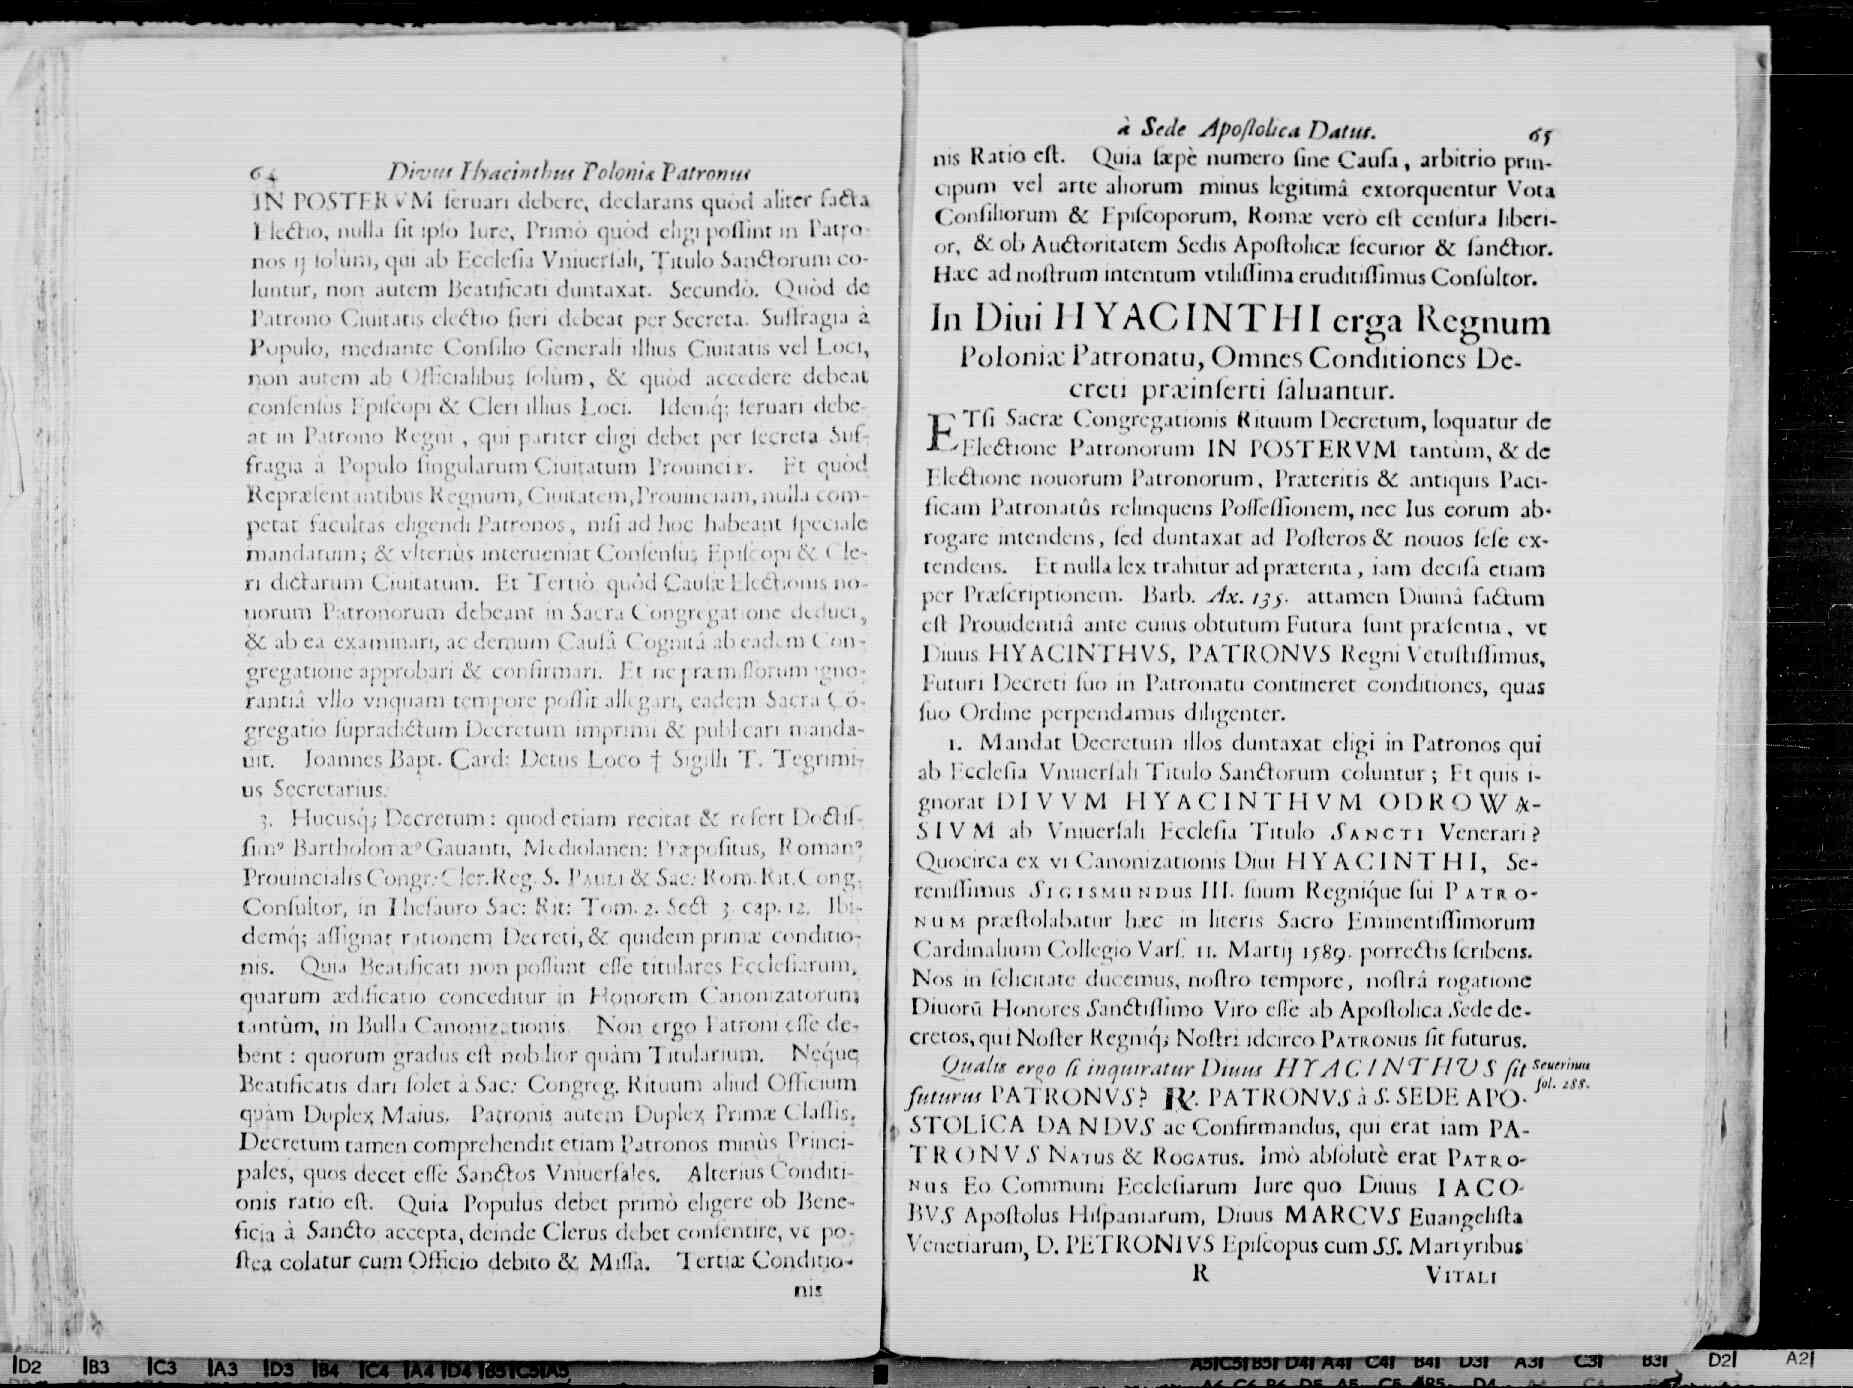 64 Divus Hyacinthus Poloniæ Patronus
IN POSTERVM ſeruari debere, declarans quòd aliter facta
Electio, nulla ſit ipſo Iure, Primò quòd eligi poſſint in Patro-
nos ij ſolùm, qui ab Eccleſia Vniuerſali, Titulo Sanctorum co-
luntur, non autem Beatificati duntaxat. Secundò. Quòd de
Patrono Ciuitatis electio fieri debeat per Secreta. Suffragia à
Populo, mediante Conſilio Generali illius Ciuitatis vel Loci,
non autem ab Officialibus ſolùm, & quòd accedere debeat
conſenſus Epiſcopi & Cleri illius Loci. Idemq́; ſeruari debe-
at in Patrono Regni, qui pariter eligi debet per ſecreta Suf-
fragia à Populo ſingularum Ciuitatum Prouinciæ. Et quòd
Repræſentantibus Regnum, Ciuitatem, Prouinciam, nulla com-
petat facultas eligendi Patronos, niſi ad hoc habeant ſpeciale
mandatum; & vlteriùs interueniat Conſenſus Epiſcopi & Cle-
ri dictarum Ciuitatum. Et Tertiò quòd Cauſæ Electionis no-
uorum Patronorum debeant in Sacra Congregatione deduci,
& ab ea examinari, ac demum Cauſâ Cognitâ ab eadem Con-
gregatione approbari & confirmari. Et ne præmiſſorum igno-
rantiâ vllo vnquam tempore poſſit allegari, eadem Sacra Cõ-
gregatio ſupradictum Decretum imprimi & publicari manda-
uit. Joannes Bapt. Card: Detus Loco † Sigilli T. Tegrimi-
us Secretarius.
3. Hucusq́; Decretum: quod etiam recitat & refert Doctiſ-
ſimꝰ Bartholomæꝰ Gauanti, Mediolanen: Præpoſitus, Romanꝰ
Prouincialis Congr: Cler. Reg. S. PAULI & Sac: Rom. Rit. Cong.
Conſultor, in Theſauro Sac: Rit: Tom. 2. Sect 3. cap. 12. Ibi-
demq́; aſſignat rationem Decreti, & quidem primæ conditio-
nis. Quia Beatificati non poſſunt eſſe titulares Eccleſiarum,
quarum ædificatio conceditur in Honorem Canonizatorum
tantùm, in Bulla Canonizationis. Non ergo Patroni eſſe de-
bent: quorum gradus eſt nobilior quàm Titularium. Neq́ue
Beatificatis dari ſolet à Sac: Congreg. Rituum aliud Officium
quàm Duplex Maius. Patronis autem Duplex Primæ Claſſis.
Decretum tamen comprehendit etiam Patronos minùs Princi-
pales, quos decet eſſe Sanctos Vniuerſales. Alterius Conditi-
onis ratio eſt. Quia Populus debet primò eligere ob Bene-
ficia à Sancto accepta, deinde Clerus debet conſentire, vt po-
ſtea colatur cum Officio debito & Miſſa. Tertiæ Conditio-
nis
à Sede Apoſtolica Datus. 65
nis Ratio eſt. Quia ſæpè numero ſine Cauſa, arbitrio prin-
cipum vel arte aliorum minus legitimâ extorquentur Vota
Conſiliorum & Epiſcoporum, Romæ verò eſt cenſura liberi-
or, & ob Auctoritatem Sedis Apoſtolicæ ſecurior & ſanctior.
Hæc ad noſtrum intentum vtiliſſima eruditiſſimus Conſultor.
In Diui HYACINTHI erga Regnum
Poloniæ Patronatu, Omnes Conditiones De-
creti præinſerti ſaluantur.
ETſi Sacræ Congregationis Rituum Decretum, loquatur de
Electione Patronorum IN POSTERVM tantùm, & de
Electione nouorum Patronorum, Præteritis & antiquis Paci-
ficam Patronatûs relinquens Poſſeſſionem, nec Ius eorum ab-
rogare intendens, ſed duntaxat ad Poſteros & nouos ſeſe ex-
tendens. Et nulla lex trahitur ad præterita, iam deciſa etiam
per Præſcriptionem. Barb. Ax. 135. attamen Diuinâ factum
eſt Prouidentiâ ante cuius obtutum Futura ſunt præſentia, vt
Diuus HYACINTHVS, PATRONVS Regni Vetuſtiſſimus,
Futuri Decreti ſuo in Patronatu contineret conditiones, quas
ſuo Ordine perpendamus diligenter.
1. Mandat Decretum illos duntaxat eligi in Patronos qui
ab Eccleſia Vniuerſali Titulo Sanctorum coluntur; Et quis i-
gnorat DIVVM HYACINTHVM ODROWA-
SIVM ab Vniuerſali Eccleſia Titulo SANCTI Venerari?
Quocirca ex vi Canonizationis Diui HYACINTHI, Se-
reniſſimus SIGISMUNDUS III. ſuum Regniq́ue ſui PATRO-
NUM præſtolabatur hæc in literis Sacro Eminentiſſimorum
Cardinalium Collegio Varſ. 11. Martij 1589. porrectis ſcribens.
Nos in felicitate ducemus, noſtro tempore, noſtrâ rogatione
Diuorũ Honores Sanctiſſimo Viro eſſe ab Apoſtolica Sede de-
cretos, qui Noſter Regniq́; Noſtri idcirco PATRONUS ſit futurus.
Qualis ergo ſi inquiratur Diuus HYACINTHUS ſit
Seuerinus
fol. 288.
futurus PATRONVS? ℟. PATRONVS à S. SEDE APO-
STOLICA DANDVS ac Confirmandus, qui erat iam PA-
TRONVS NATUS & ROGATUS. Imò abſolutè erat PATRO-
NUS Eo Communi Eccleſiarum Iure quo Diuus IACO-
BVS Apoſtolus Hiſpaniarum, Diuus MARCVS Euangeliſta
Venetiarum, D. PETRONIVS Epiſcopus cum SS. Martyribus
R VITALI
D2 B3 C3 A3 D3 B4 C4 A4 D4 B5 C5 A5
A5 C5 B5 D4 A4 C4 B4 D3 A3 C3 B3 D2 A2